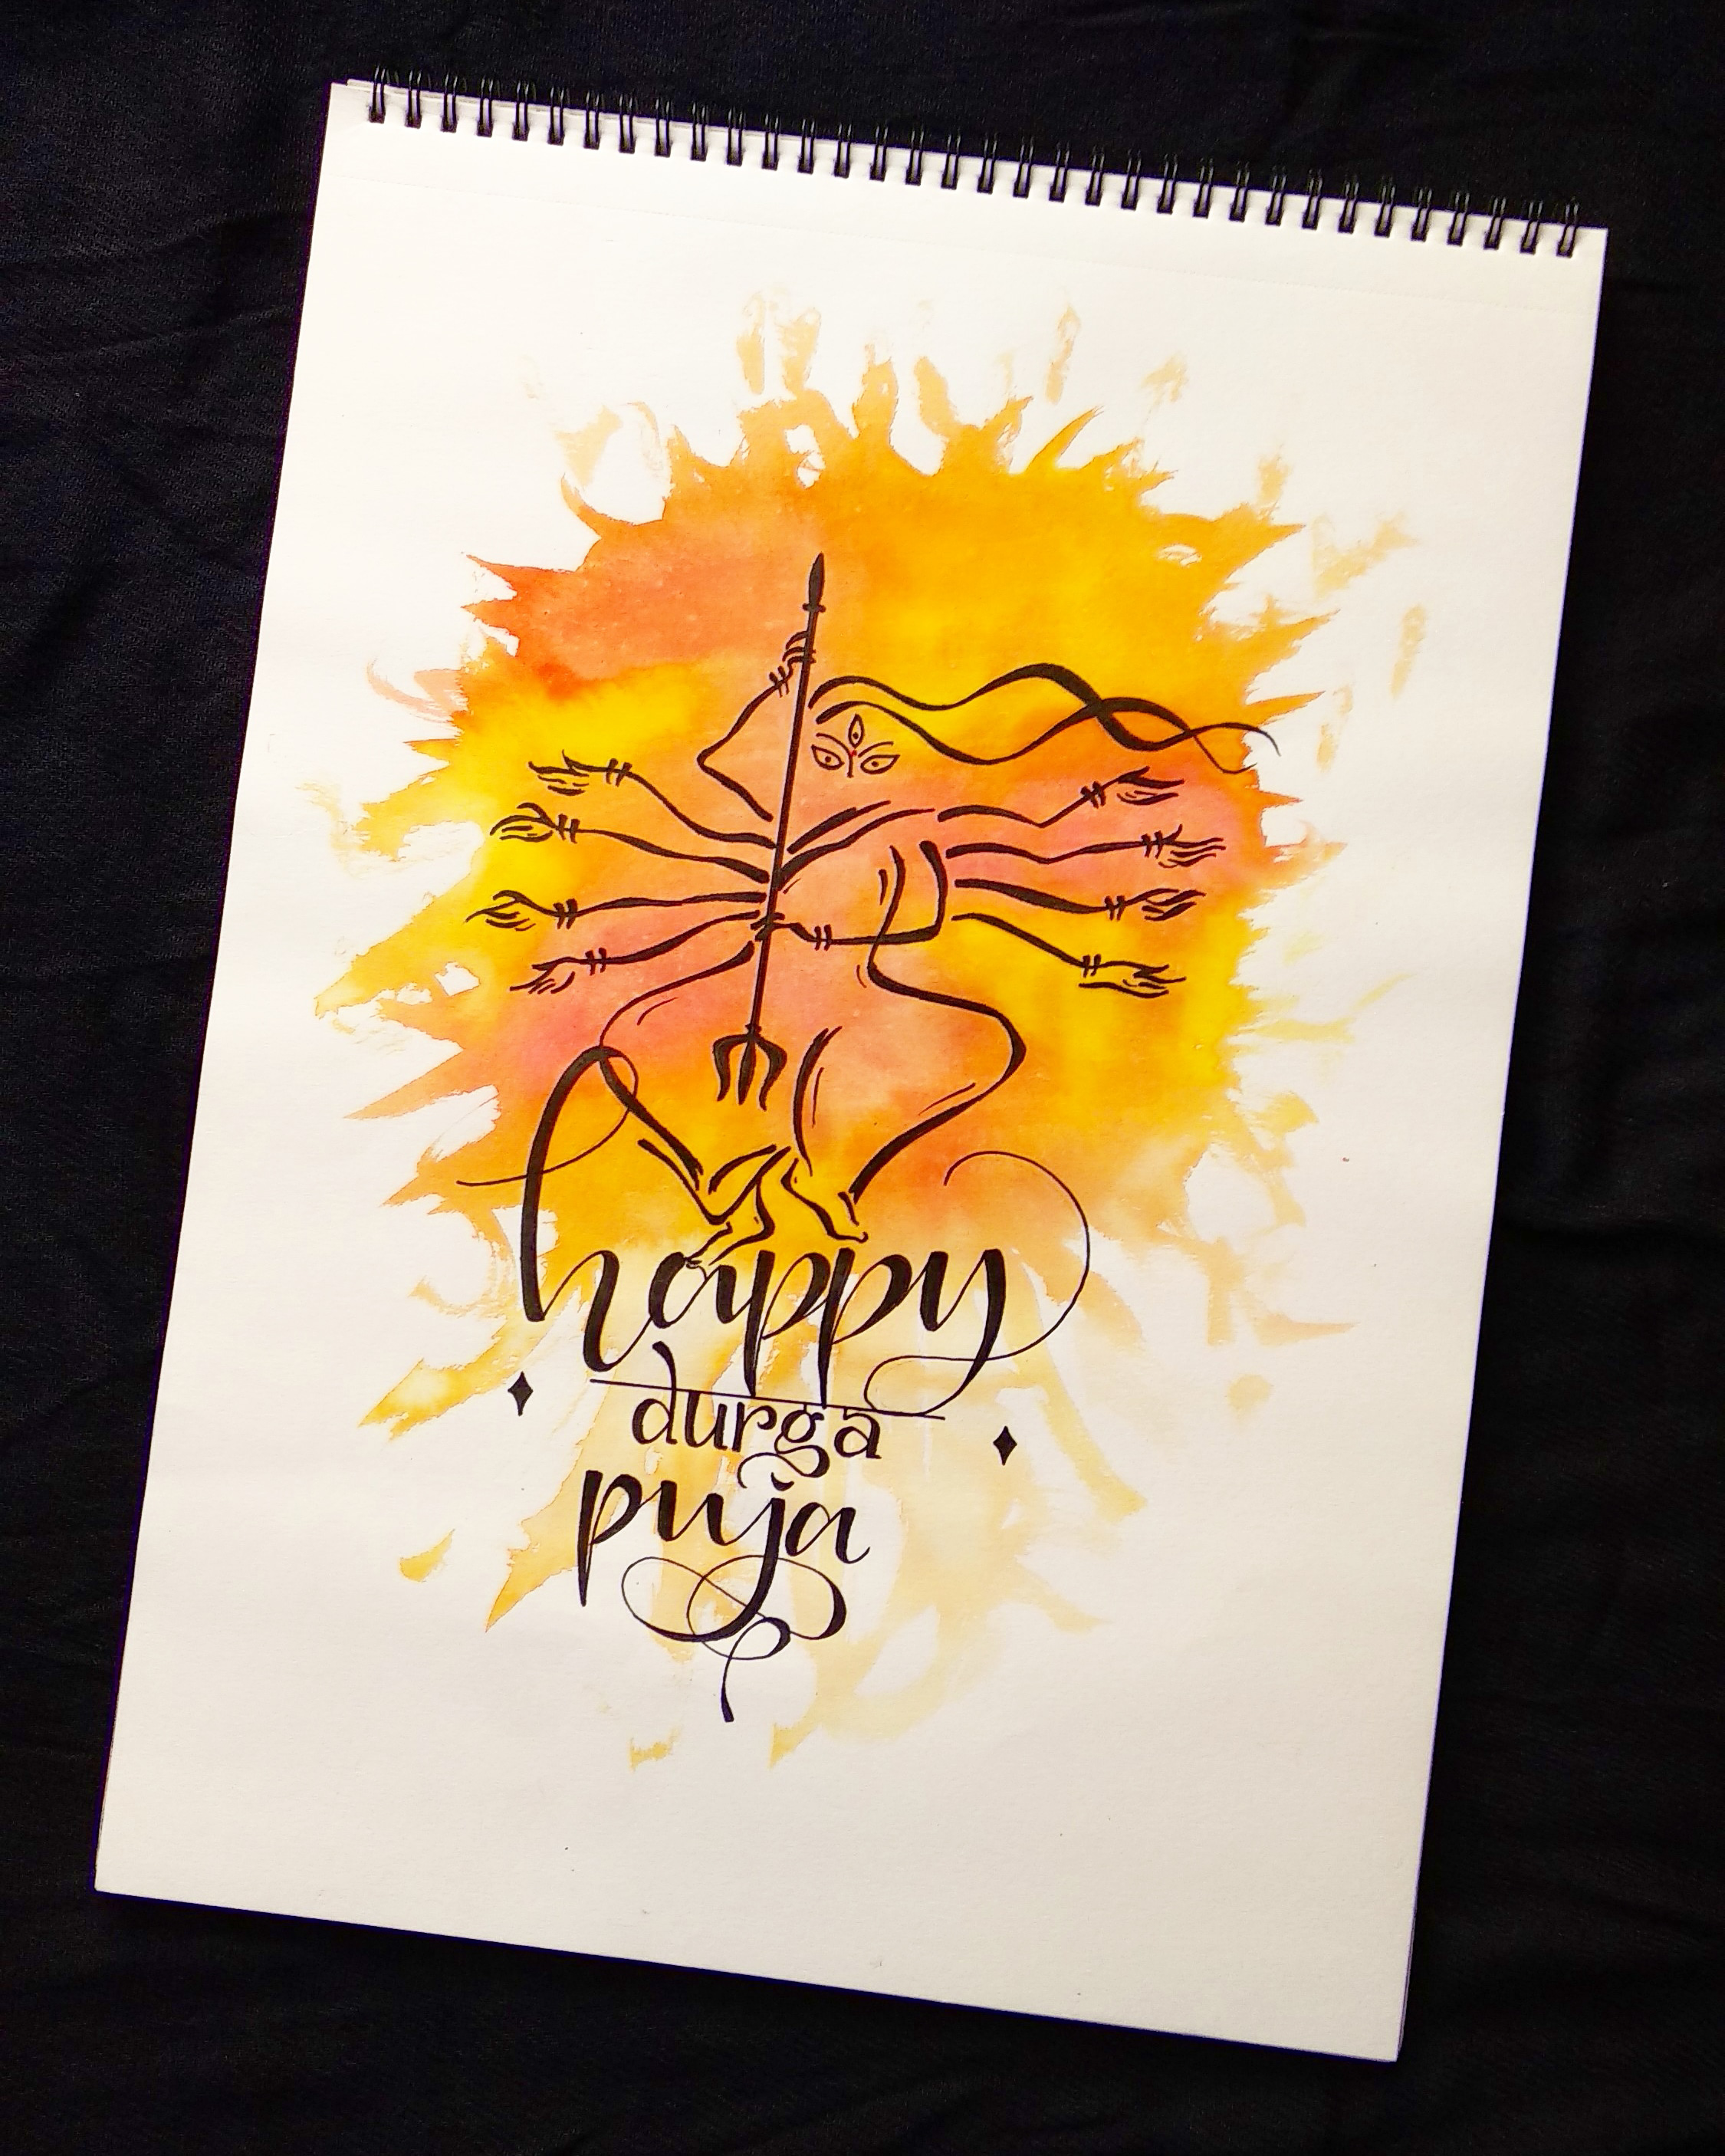 happy
durga
puja